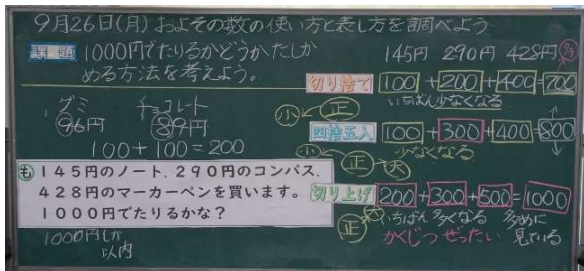 9月26日(月) およその数の使い方と表し方を調べよう
課題 1000円でたりるかどうかたしか
める方法を考えよう。
グミ チョコレート
96円 89円
100+100=200
も 145円のノート、290円のコンパス、
428円のマーカーペンを買います。
1000円でたりるかな？
1000円しか
以内
145円 290円 428円
切り捨て 100+200+400=700
いちばん少なくなる
小 正
四捨五入 100+300+400=800
少なくなる
小 正 大
切り上げ 200+300+500=1000
正 大 いちばん多くなる 多めに
かくじつ ぜったい 見ている